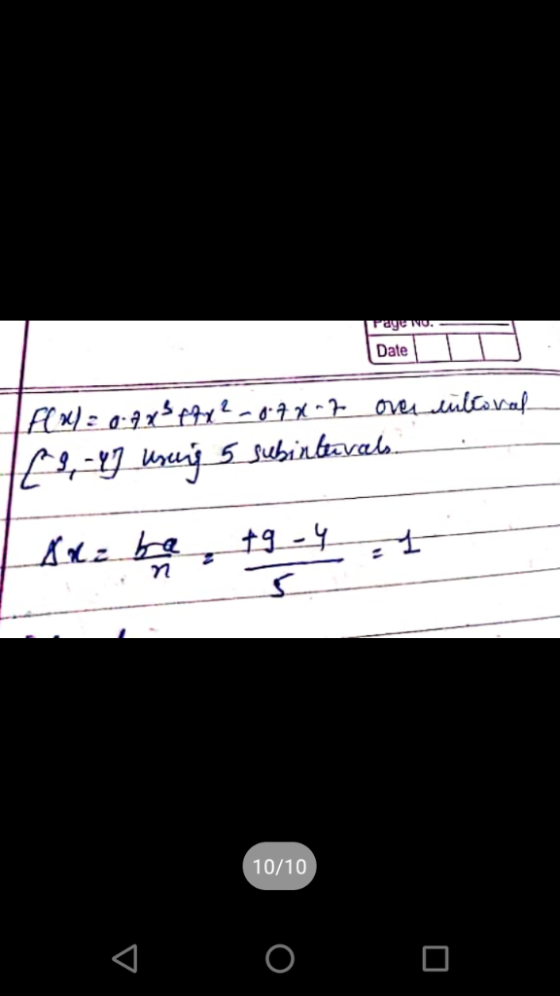 Page No.
Date
F(x) = 0.7x³ + 7x² - 0.7x - 7 over interval
[-9, -4] using 5 subintervals.
Δx = b-a/n = +9-4/5 = 1
10/10